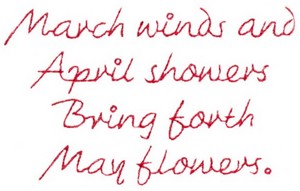 March winds and
April showers
Bring forth
May flowers.